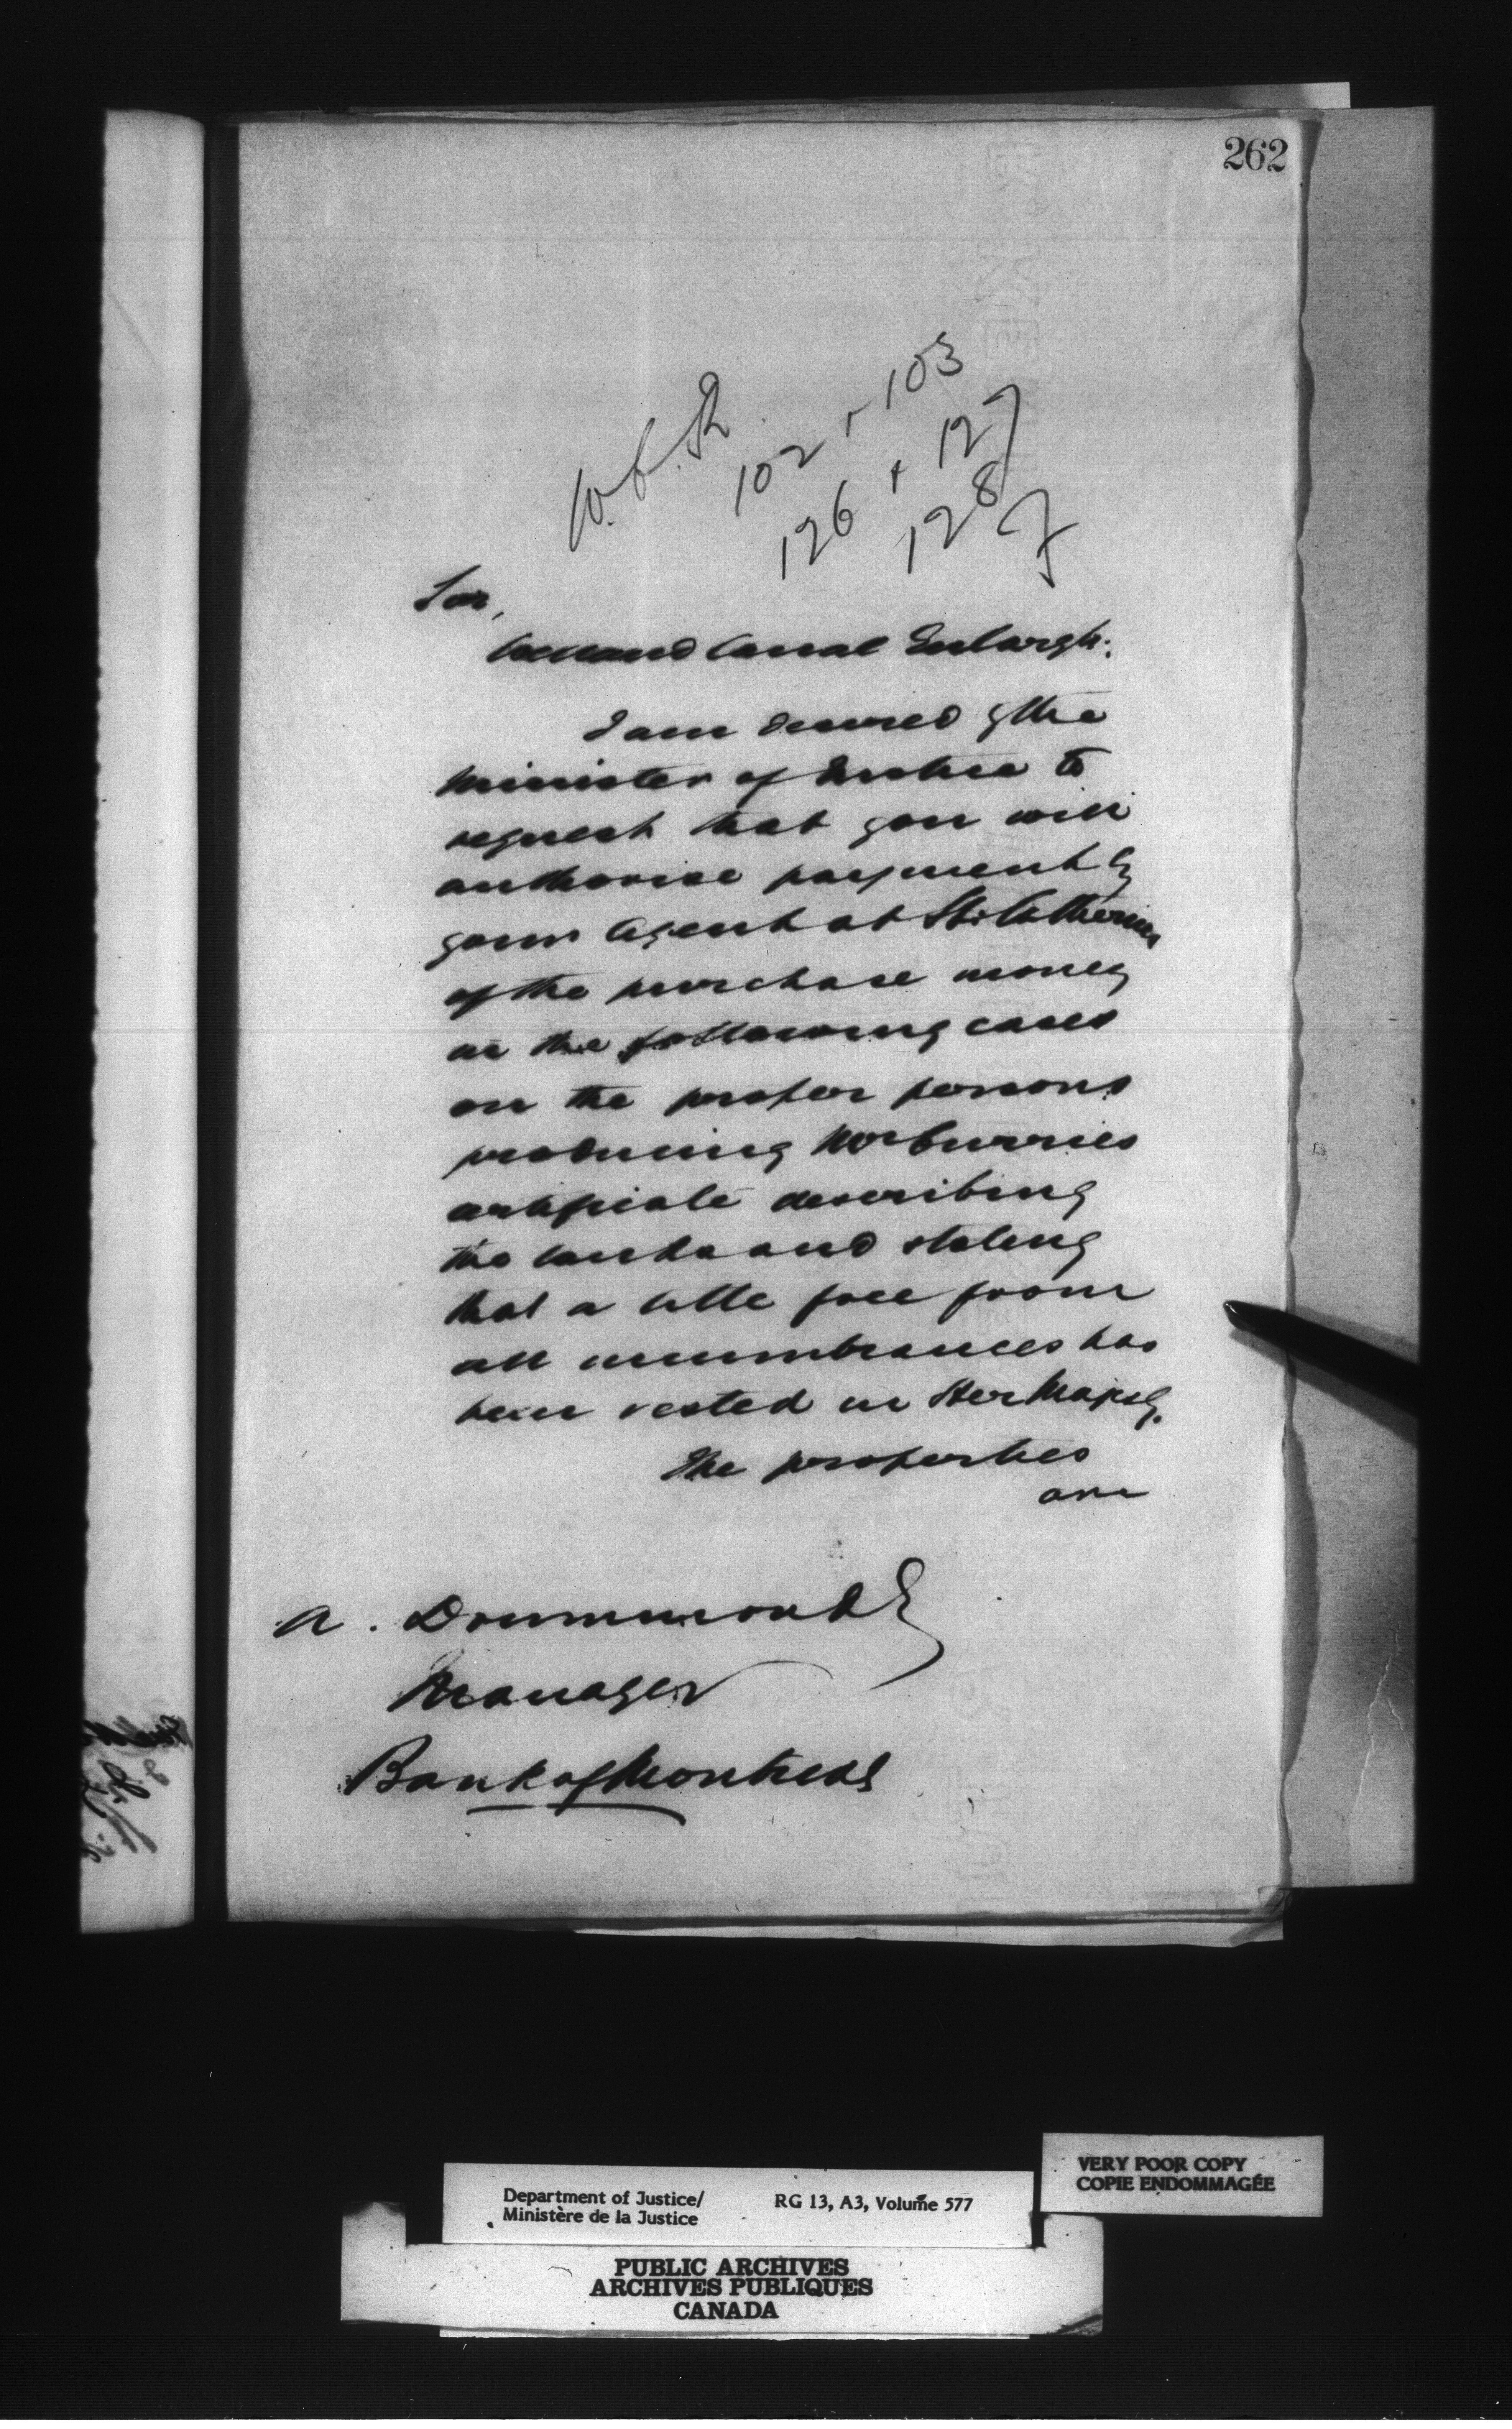 262
W.C.R. 102 + 103
126 + 127
128
Sir,
Welland Canal Enlargt.
I am desired by the
Minister of Justice to
request that you will
authorise payment by
your Agent at St. Catherines
of the purchase money
in the following cases
on the proper persons
producing Mr Currie's
certificate describing
the lands and stating
that a title free from
all incumbrances has
been vested in Her Majesty.
The properties
are
A. Drummond E
Manager
Bank of Montreal
VERY POOR COPY
COPIE ENDOMMAGÉE
Department of Justice/
Ministère de la Justice
RG 13, A3, Volume 577
PUBLIC ARCHIVES
ARCHIVES PUBLIQUES
CANADA